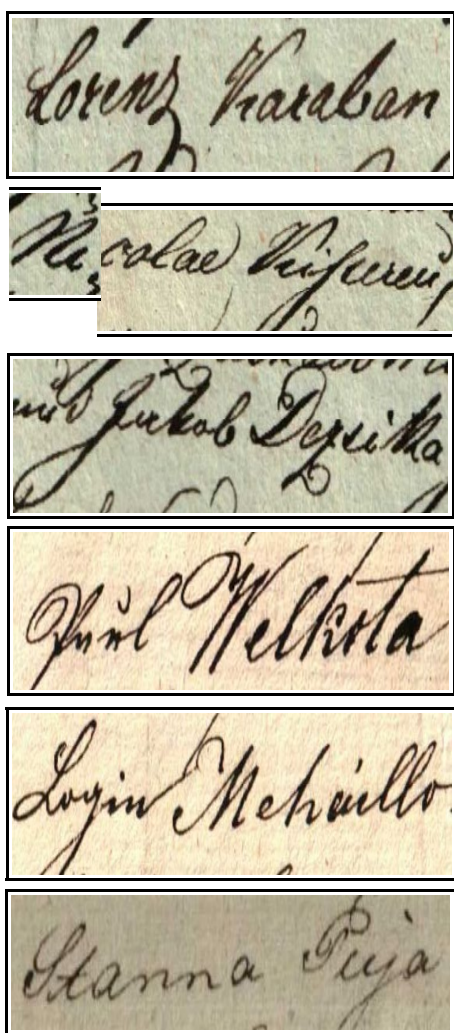 Lorenz Karaban
Nicolae
und Jakob Dezsika
Paul Welkota
Login Mehaillo
Stanna Puja